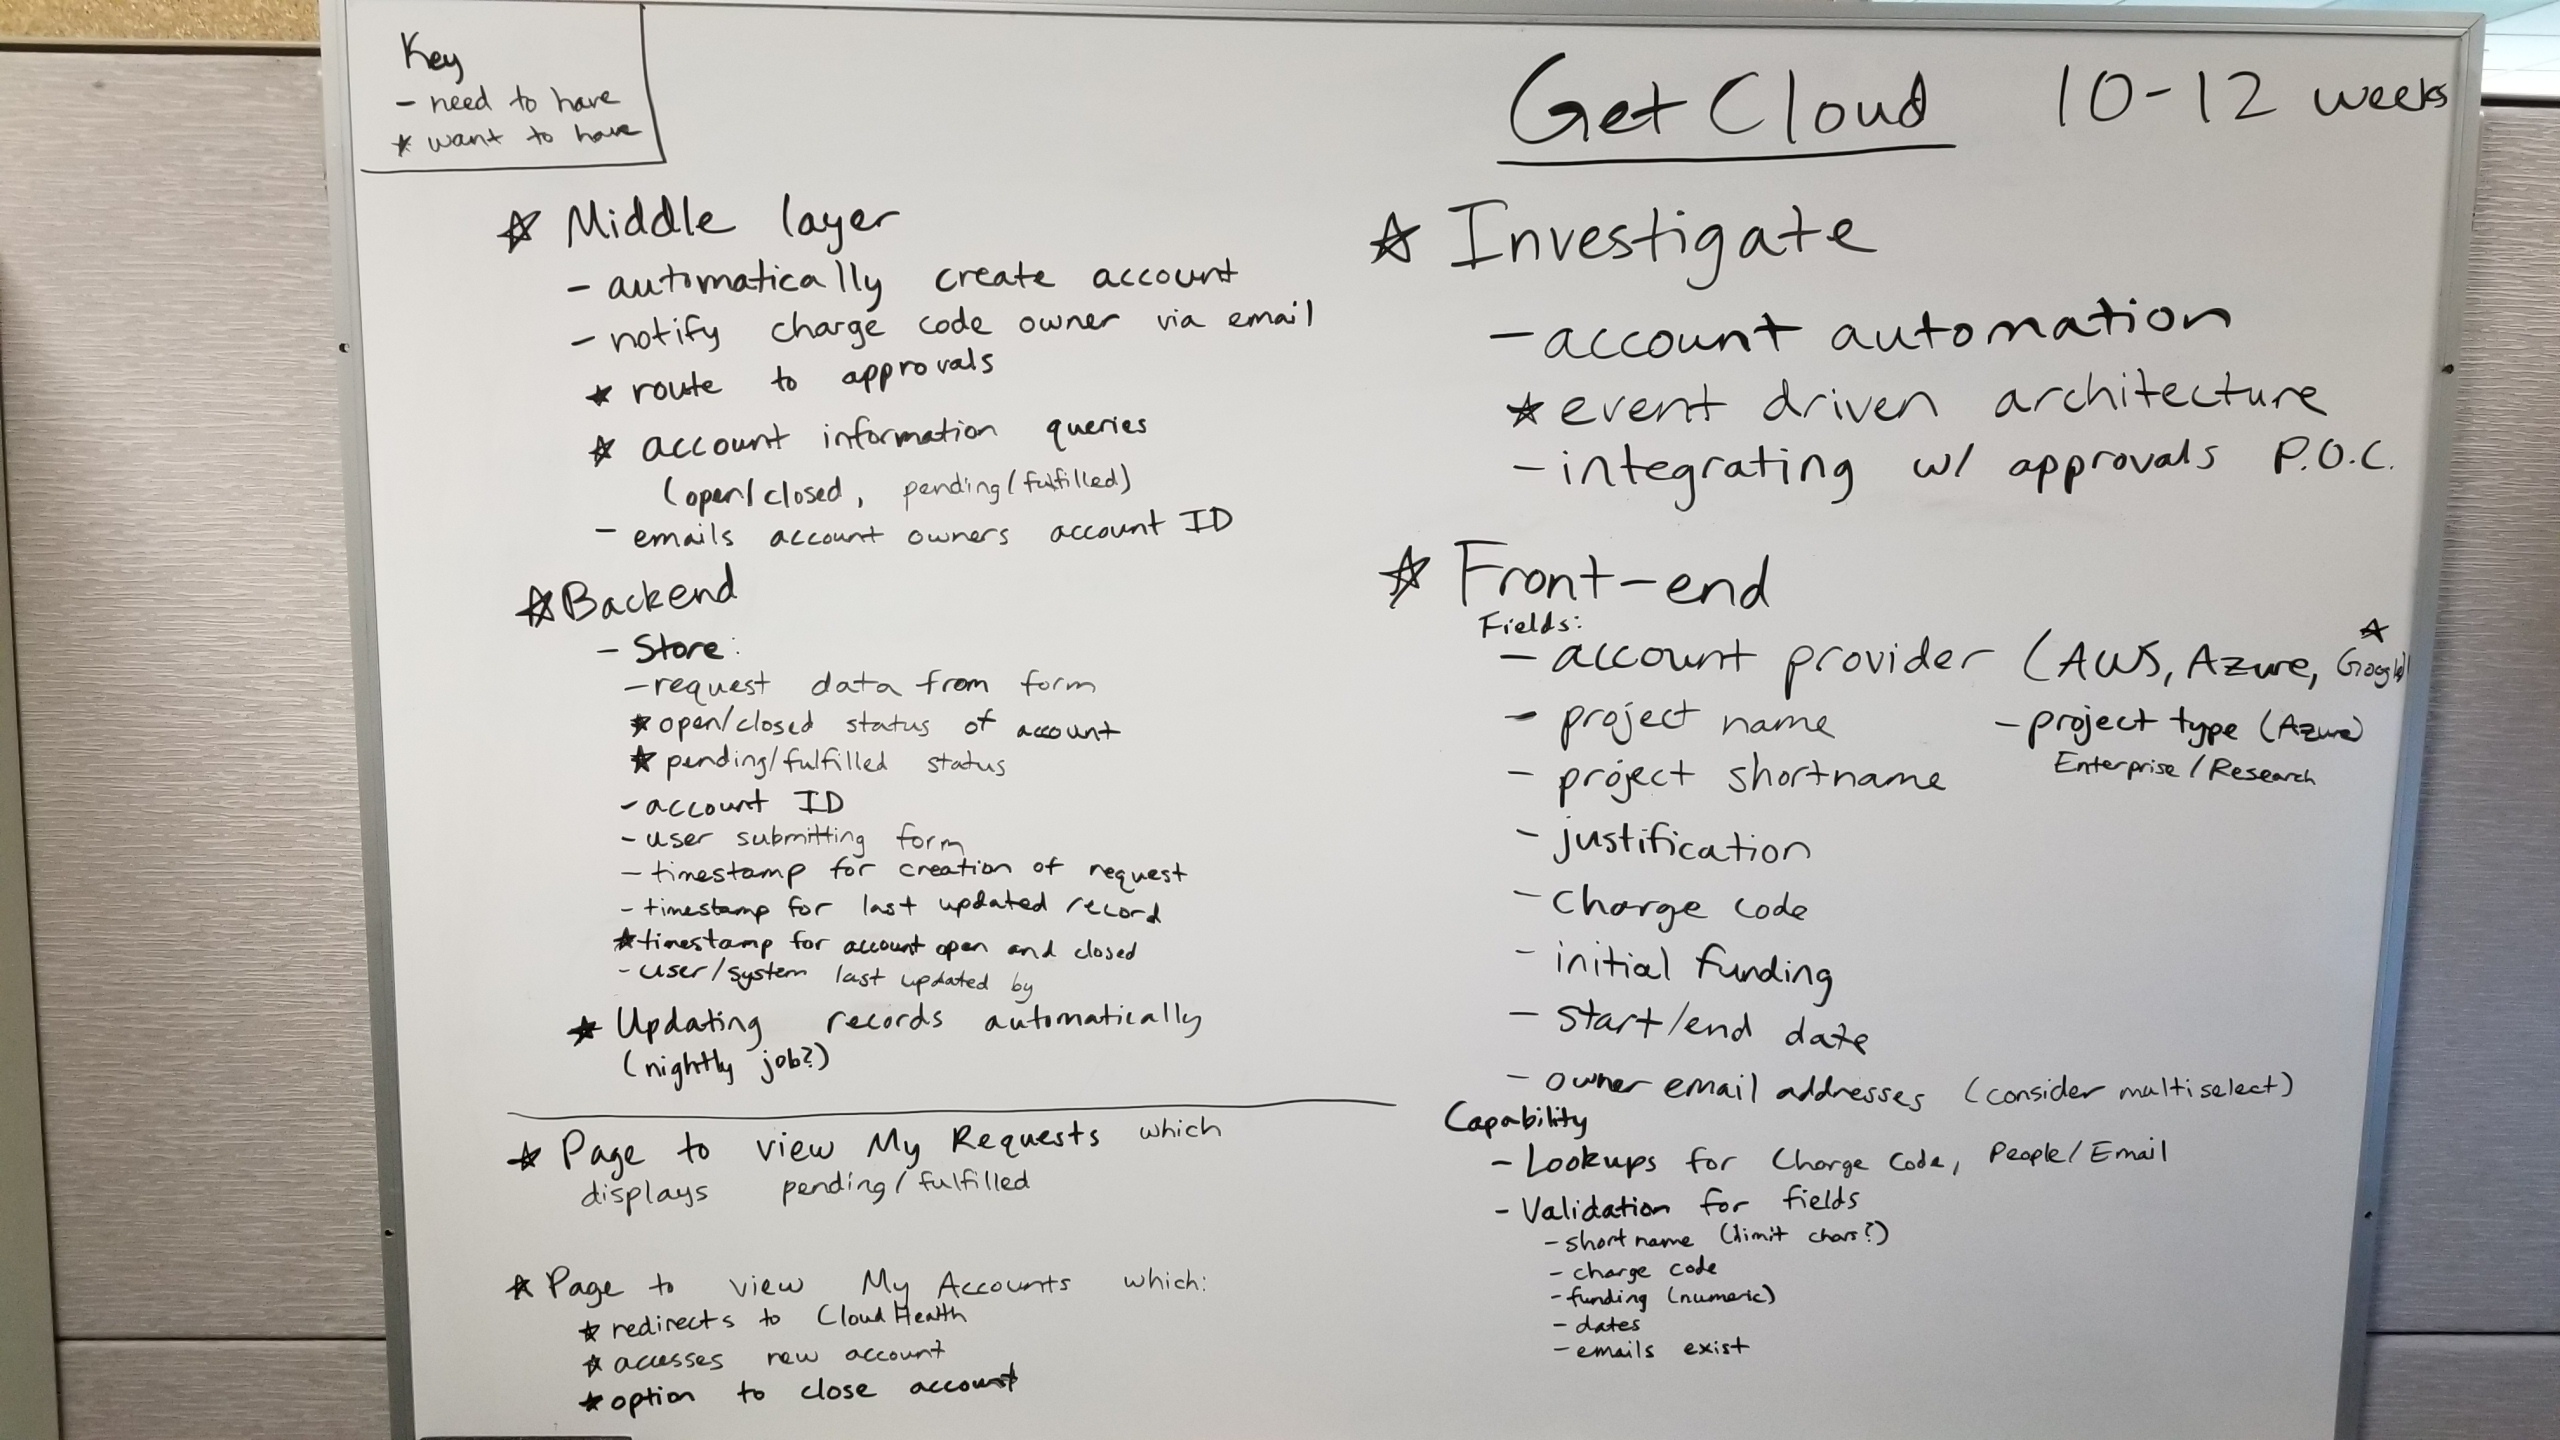 Key
- need to have
★ want to have
Get Cloud 10-12 weeks
☆ Middle layer
- automatically create account
- notify charge code owner via email
★ route to approvals
★ account information queries
(open/closed, pending/fulfilled)
- emails account owners account ID
☆ Backend
- Store:
- request data from form
★ open/closed status of account
★ pending/fulfilled status
- account ID
- user submitting form
- timestamp for creation of request
- timestamp for last updated record
★ timestamp for account open and closed
- user/system last updated by
★ Updating records automatically
(nightly job?)
★ Page to view My Requests which
displays pending/fulfilled
★ Page to view My Accounts which:
★ redirects to CloudHealth
★ accesses new account
★ option to close account
☆ Investigate
- account automation
★ event driven architecture
- integrating w/ approvals P.O.C.
☆ Front-end
Fields:
- account provider (AWS, Azure, ☆ Google)
- project name
- project type (Azure)
Enterprise/Research
- project shortname
- justification
- charge code
- initial funding
- start/end date
- owner email addresses (consider multiselect)
Capability
- Lookups for Charge Code, People/Email
- Validation for fields
- short name (limit chars?)
- charge code
- funding (numeric)
- dates
- emails exist